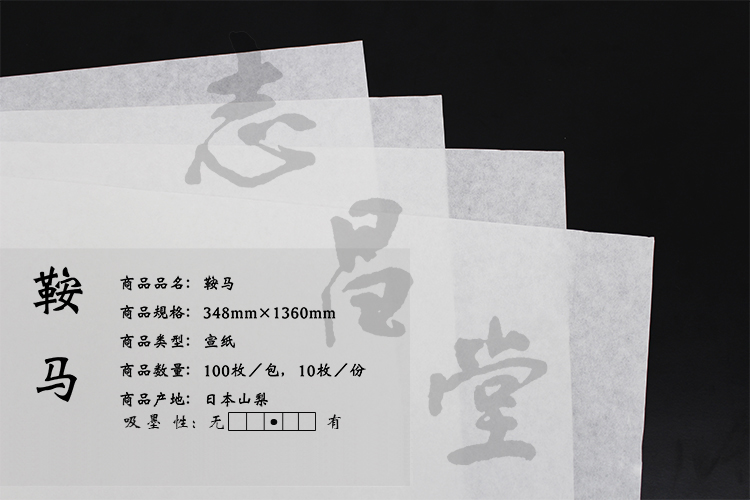 志昌堂
鞍马
商品品名：鞍马
商品规格：348mm×1360mm
商品类型：宣纸
商品数量：100枚／包，10枚／份
商品产地：日本山梨
吸墨性：无 有